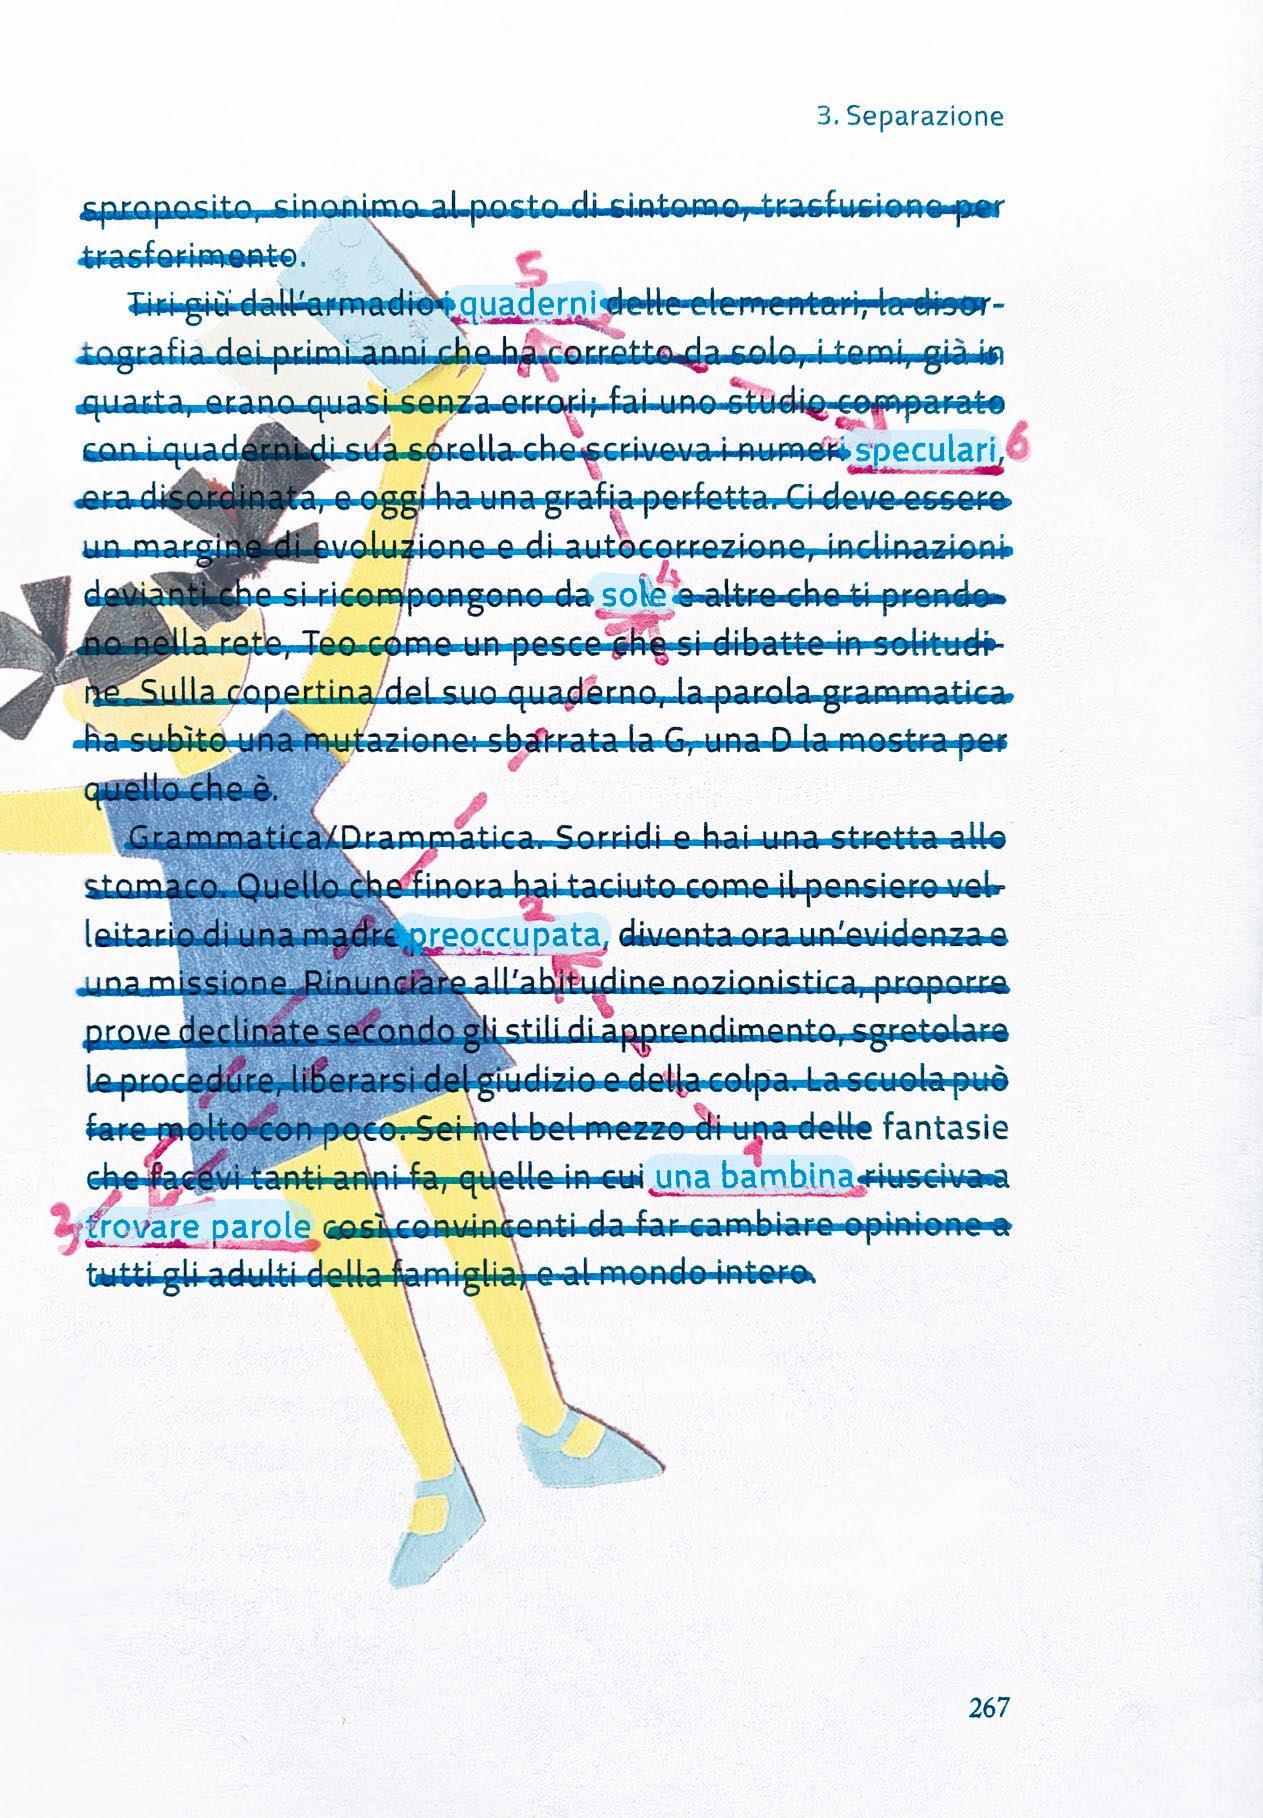 3. Separazione
sproposito, sinonimo al posto di sintomo, trasfusione per
trasferimento.
5
Tiri giù dall'armadio i quaderni delle elementari, la disor-
tografia dei primi anni che ha corretto da solo, i temi, già in
quarta, erano quasi senza errori; fai uno studio comparato
con i quaderni di sua sorella che scriveva i numeri speculari, 6
era disordinata, e oggi ha una grafia perfetta. Ci deve essere
un margine di evoluzione e di autocorrezione, inclinazioni
4
devianti che si ricompongono da sole e altre che ti prendo-
no nella rete, Teo come un pesce che si dibatte in solitudi-
ne. Sulla copertina del suo quaderno, la parola grammatica
ha subìto una mutazione: sbarrata la G, una D la mostra per
quello che è.
Grammatica/Drammatica. Sorridi e hai una stretta allo
stomaco. Quello che finora hai taciuto come il pensiero vel-
2
leitario di una madre preoccupata, diventa ora un'evidenza e
una missione. Rinunciare all'abitudine nozionistica, proporre
prove declinate secondo gli stili di apprendimento, sgretolare
le procedure, liberarsi del giudizio e della colpa. La scuola può
fare molto con poco. Sei nel bel mezzo di una delle fantasie
1
che facevi tanti anni fa, quelle in cui una bambina riusciva a
3 trovare parole così convincenti da far cambiare opinione a
tutti gli adulti della famiglia, e al mondo intero.
267